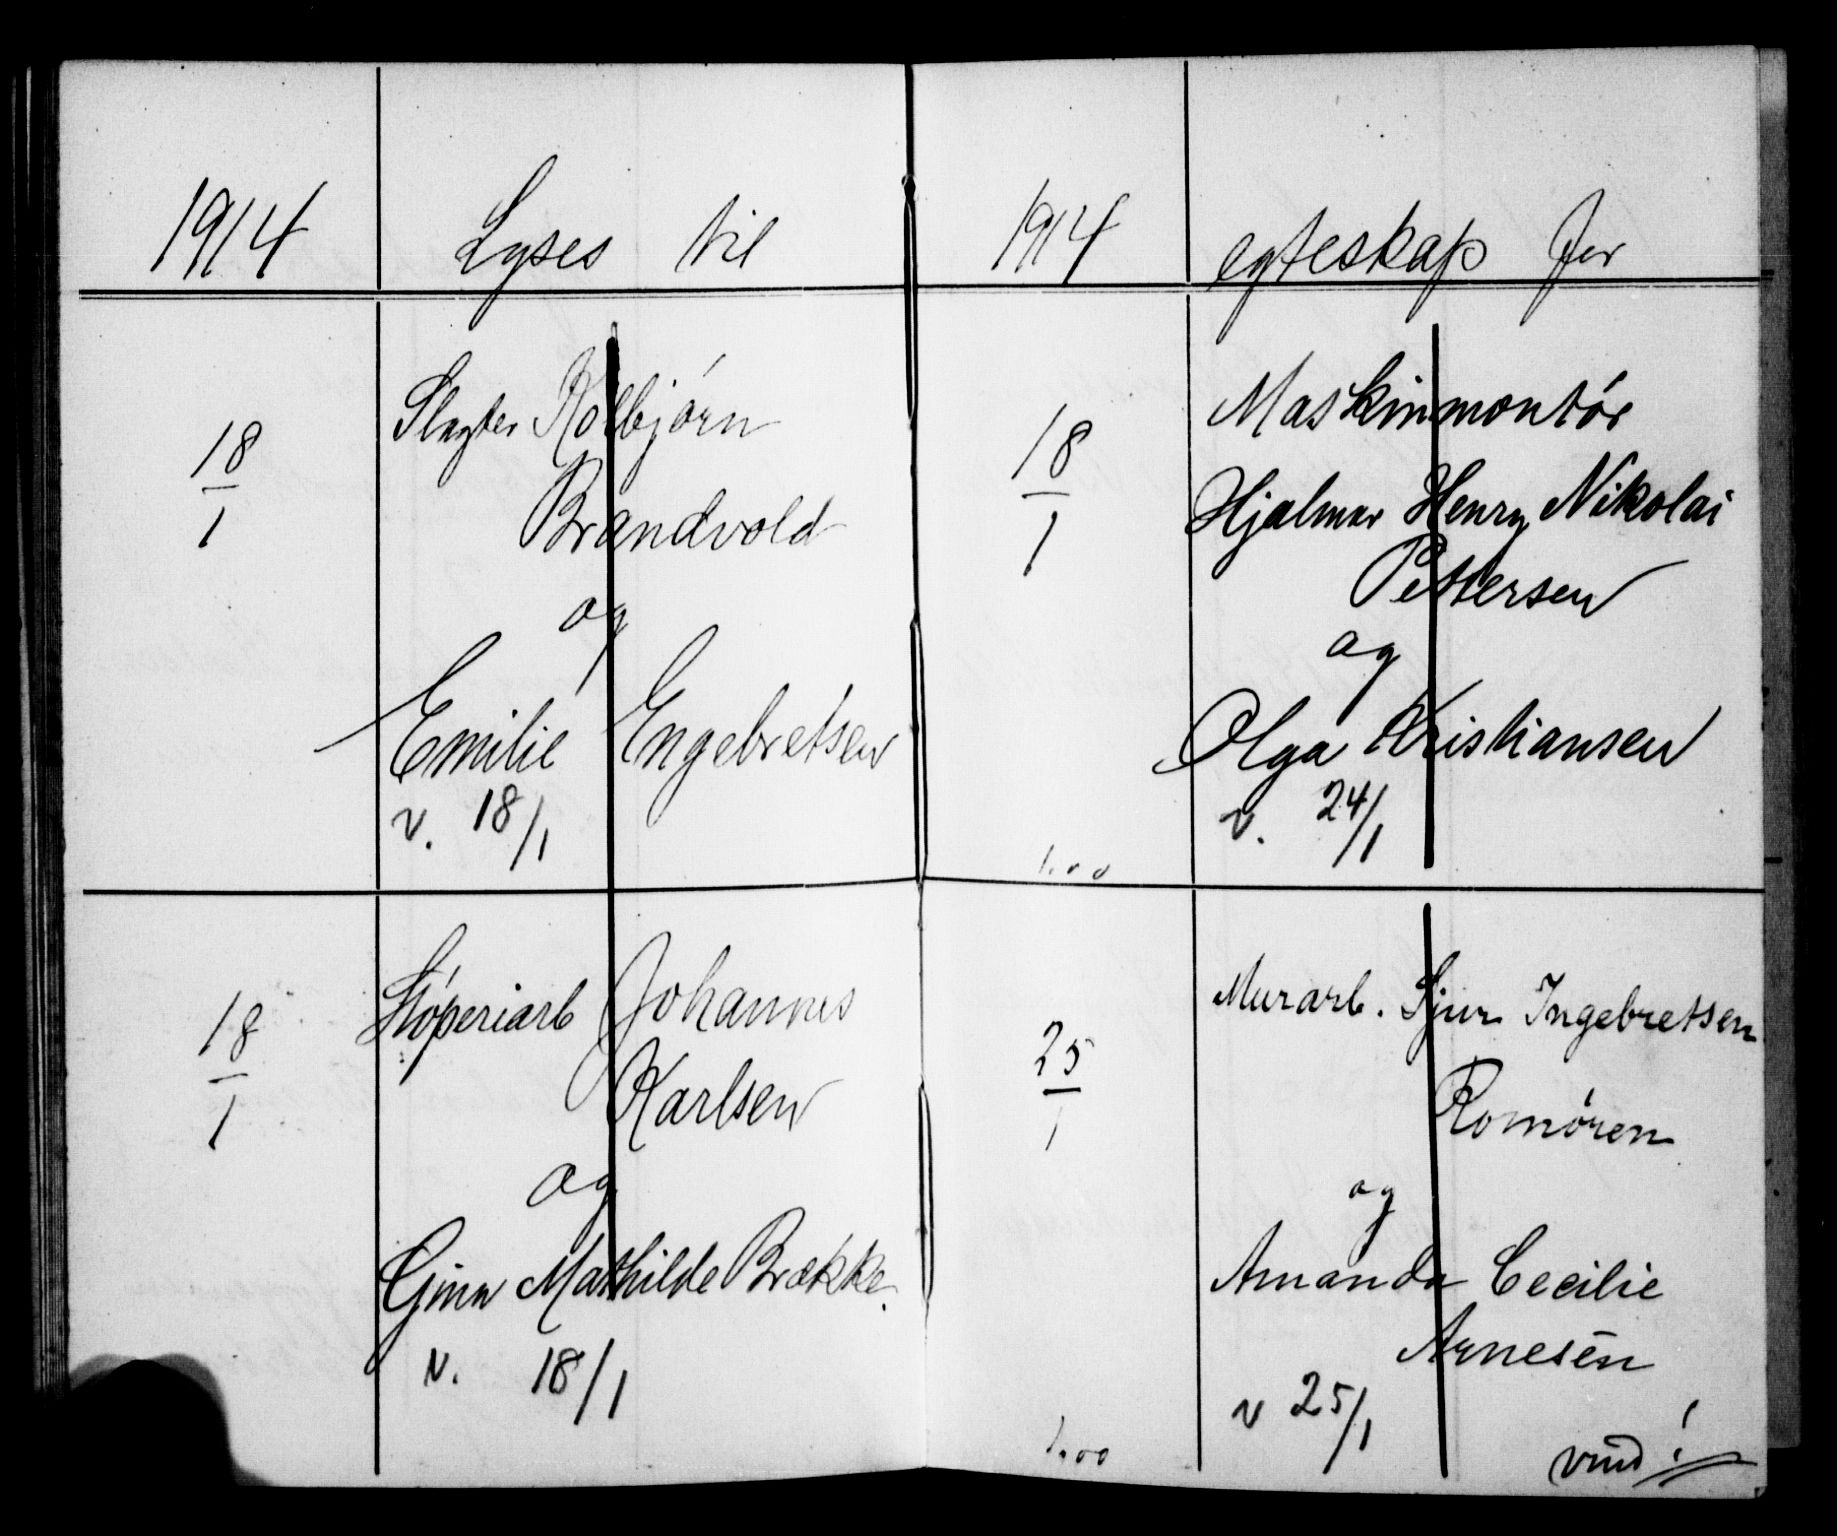 1914 Lyses til
18/1 Slagter Kolbjörn
Brandvold
og
Emilie Engebretsen
v. 18/1
18/1 Stöperiarb Johannes
Karlsen
og
Gina Mathilde Brække.
v. 18/1
1914 egteskap for
18/1 Maskinmontör
Hjalmar Henry Nikolai
Pettersen
og
Olga Kristiansen
v. 24/1
1.00
25/1 Murarb. Sjur Ingebretsen
Romören
og
Amanda Cecilie
Arnesen
v 25/1
1.00
vend!